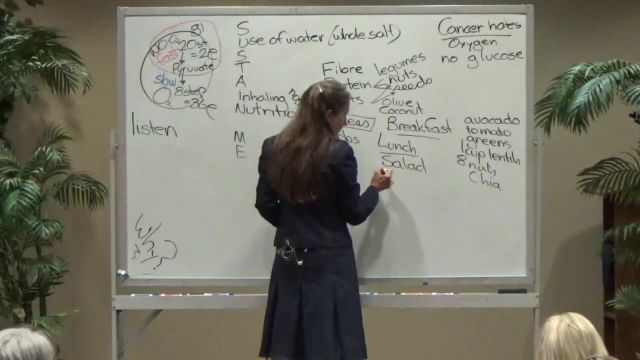 gl
NO O2
20st
= 2e
fast
Pyruvate
slow
8 step
O2 = 36e
listen
S
Use of water (whole salt)
S
T
A
Inhaling
Nutrition
M
E
Fibre
legumes
nuts
seeds
Olive
coconut
Breakfast
Lunch
Salad
Cancer notes
Oxygen
no glucose
avocado
tomato
greens
1 cup lentils
8 nuts
Chia